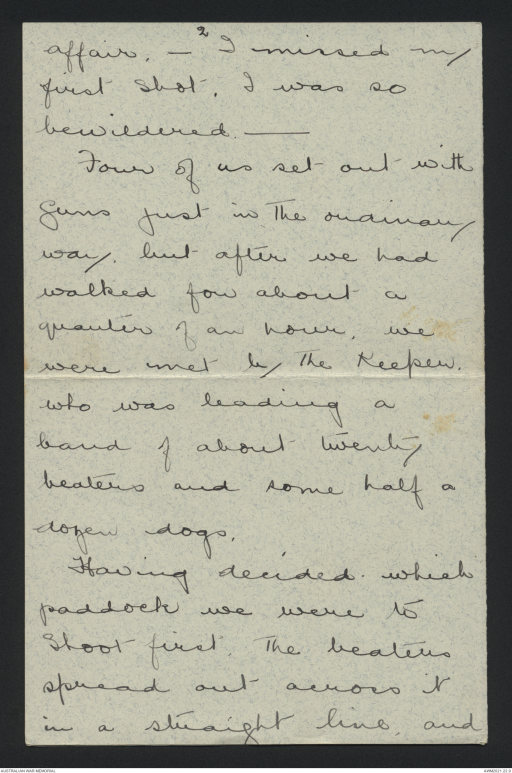 2
affair. — I missed my
first shot. I was so
bewildered. —
Four of us set out with
guns just in the ordinary
way, but after we had
walked for about a
quarter of an hour, we
were met by the Keeper.
who was leading a
band of about twenty
beaters and some half a
dozen dogs.
Having decided which
paddock we were to
shoot first. The beaters
spread out across it
in a straight line, and
AUSTRALIAN WAR MEMORIAL